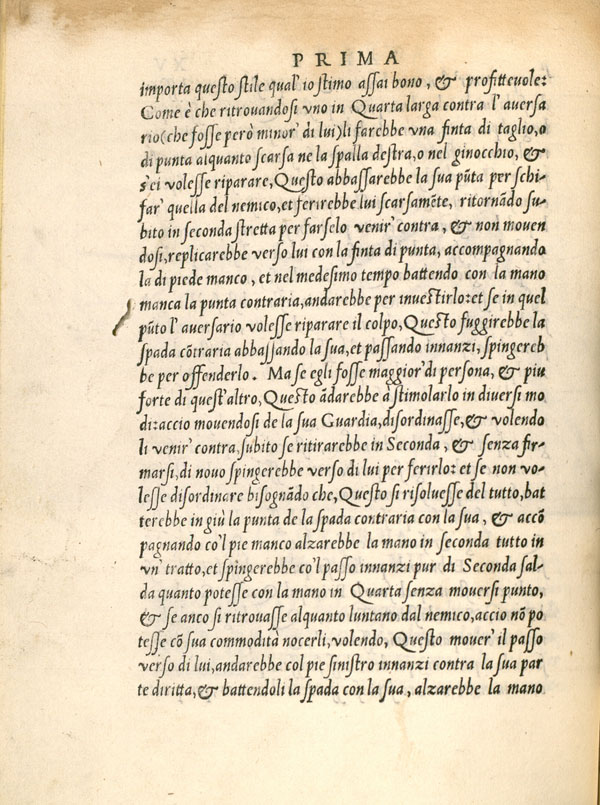 PRIMA
importa questo stile qual' io stimo assai bono, & profitteuole:
Come è che ritrouandosi vno in Quarta larga contra l' auersa
rio(che fosse però minor' di lui)li farebbe vna finta di taglio,o
di punta alquanto scarsa ne la spalla destra,o nel ginocchio, &
s'ei volesse riparare, Questo abbassarebbe la sua pũta per schi-
far' quella del nemico,et ferirebbe lui scarsamẽte, ritornãdo su-
bito in seconda stretta per farselo venir' contra, & non mouen
dosi,replicarebbe verso lui con la finta di punta, accompagnando
la di piede manco, et nel medesimo tempo battendo con la mano
manca la punta contraria,andarebbe per inuestirlo:et se in quel
pũto l' auersario volesse riparare il colpo, Questo fuggirebbe la
spada cõtraria abbassando la sua,et passando innanzi, spingereb
be per offenderlo. Ma se egli fosse maggior' di persona, & piu
forte di quest'altro, Questo ãdarebbe à stimolarlo in diuersi mo
di:accio mouendosi de la sua Guardia,disordinasse, & volendo
li venir' contra,subito se ritirarebbe in Seconda, & senza fir-
marsi,di nouo spingerebbe verso di lui per ferirlo:et se non vo-
lesse disordinare bisognãdo che, Questo si risoluesse del tutto,bat
terebbe in giù la punta de la spada contraria con la sua, & accõ
pagnando co'l pie manco alzarebbe la mano in seconda tutto in
vn' tratto,et spingerebbe co'l passo innanzi pur di Seconda sal-
da quanto potesse con la mano in Quarta senza mouersi punto,
& se anco si ritrouasse alquanto luntano dal nemico,accio nõ po
tesse cõ sua commodità nocerli,volendo, Questo mouer' il passo
verso di lui,andarebbe col pie sinistro innanzi contra la sua par
te diritta,& battendoli la spada con la sua, alzarebbe la mano